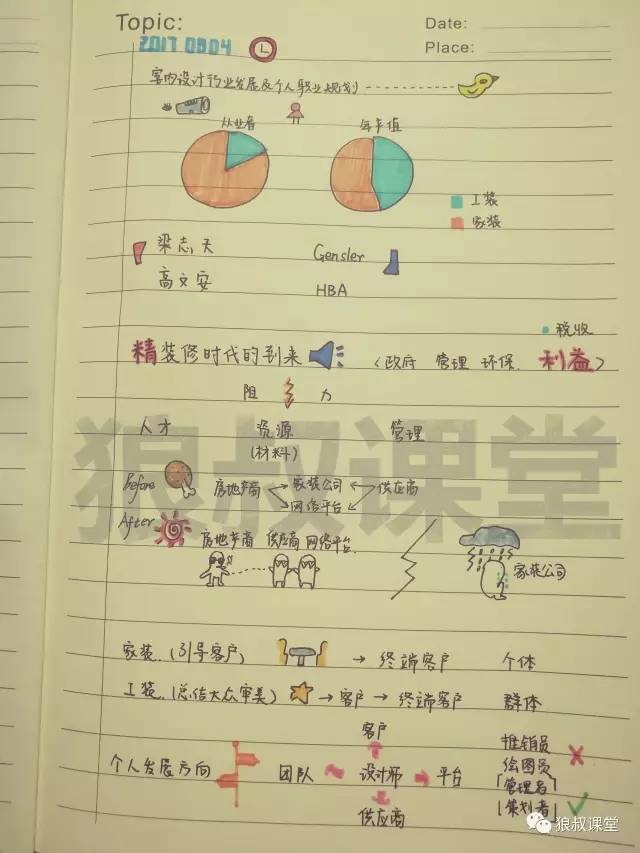 Topic:
Date:
2017 0804
Place:
室内设计行业发展及个人职业规划
从业者 年产值
工装
家装
梁志天 Gensler
高文安 HBA
税收
精装修时代的到来 (政府 管理 环保 利益)
阻 力
人才 资源 管理
(材料)
狼叔课堂
Before 房地产商 家装公司 供应商
网络平台
After 房地产商 供应商 网络平台
家装公司
家装 (引导客户) → 终端客户 个体
工装 (总结大众审美) → 客户 → 终端客户 群体
客户
推销员
绘图员
个人发展方向 团队 设计师 平台
管理者
策划者
供应商
狼叔课堂